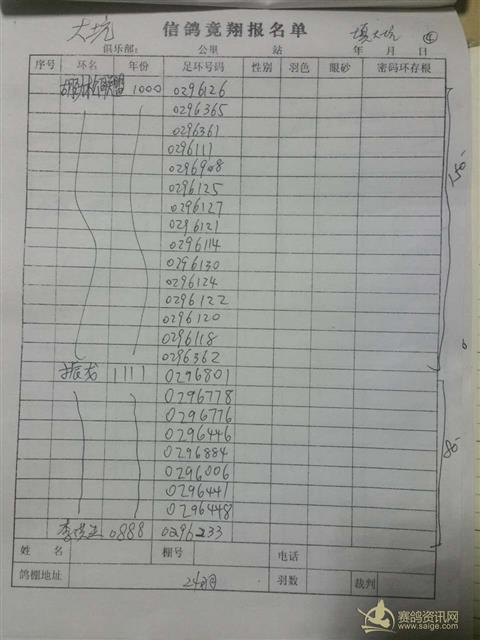 大坑 信鸽竞翔报名单 填大坑 ④
俱乐部： 公里 站 年 月 日
序号 环名 年份 足环号码 性别 羽色 眼砂 密码环存根
1000 0296126
0296365
0296361
0296111
0296908
0296125
0296127
0296121
0296114
0296130
0296124
0296122
0296120
0296118
0296362
150-
振龙 1111 0296801
0296778
0296776
0296446
0296884
0296006
0296441
0296448
80-
0888 0296233
姓名 棚号 电话
鸽棚地址 24羽 羽数 裁判
赛鸽资讯网
www.saige.com